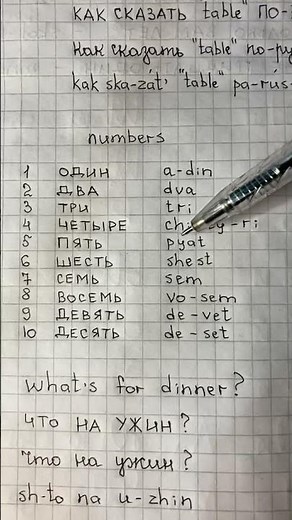 КАК СКАЗАТЬ "table" ПО-
Как сказать "table" по-ру
kak ska-zát' "table" pa-rús-
numbers
1 ОДИН a-din
2 ДВА dva
3 ТРИ tri
4 ЧЕТЫРЕ
5 ПЯТЬ pyat
6 ШЕСТЬ shest
7 СЕМЬ sem
8 ВОСЕМЬ vo-sem
9 ДЕВЯТЬ de-vet
10 ДЕСЯТЬ de-set
What's for dinner?
ЧТО НА УЖИН?
Что на ужин?
sh-to na u-zhin